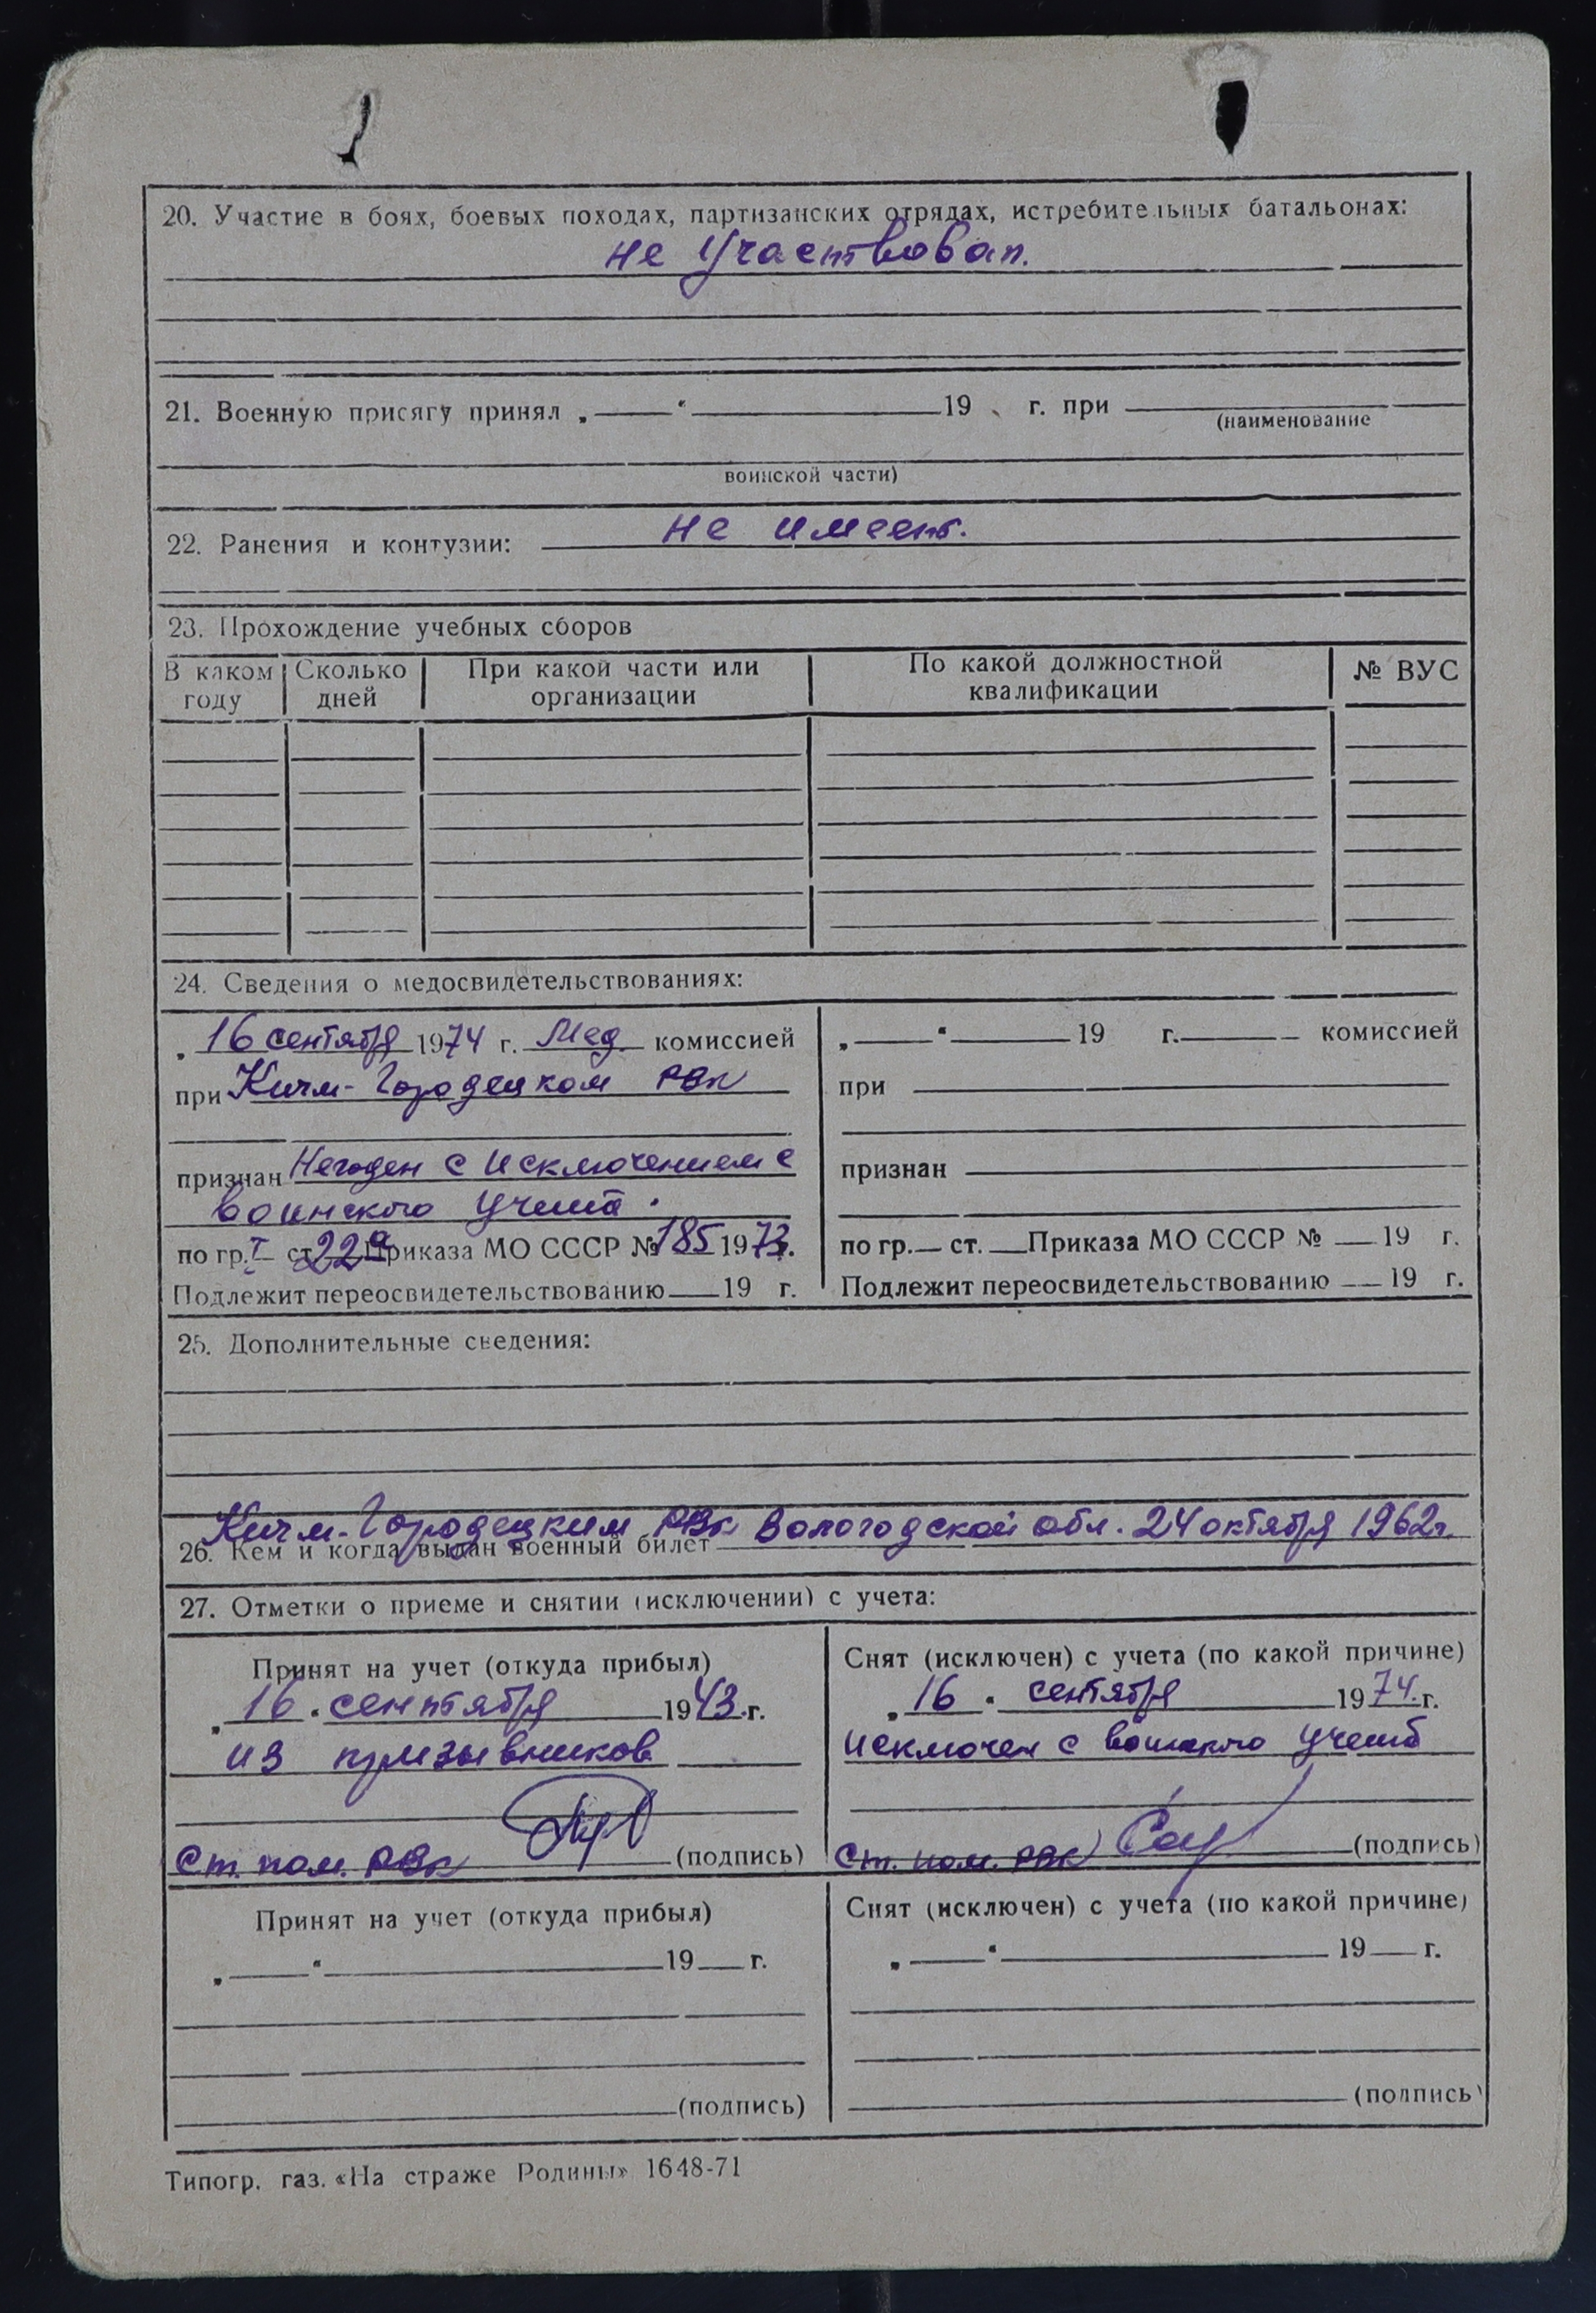 20. Участие в боях, боевых походах, партизанских отрядах, истребительных батальонах:
не участвовал.
21. Военную присягу принял „ “ 19 г. при
(наименование
воинской части)
22. Ранения и контузии: не имеет.
23. Прохождение учебных сборов
В каком году Сколько дней При какой части или организации По какой должностной квалификации № ВУС
24. Сведения о медосвидетельствованиях:
„16 сентября 1974 г. Мед. комиссией
при Кичм-Городецком РВК
признан Негоден с исключением с
воинского учета.
по гр. I ст. 22а Приказа МО СССР № 185 1973г.
Подлежит переосвидетельствованию 19 г.
„ “ 19 г. комиссией
при
признан
по гр. ст. Приказа МО СССР № 19 г.
Подлежит переосвидетельствованию 19 г.
25. Дополнительные сведения:
Кичм-Городецким РВК Вологодской обл. 24 октября 1962г.
26. Кем и когда выдан военный билет
27. Отметки о приеме и снятии (исключении) с учета:
Принят на учет (откуда прибыл)
„16 “ сентября 1943 г.
из призывников
Ст. пом. РВК (подпись)
Снят (исключен) с учета (по какой причине)
„16 “ сентября 1974 г.
исключен с воинского учета
Ст. пом. РВК (подпись)
Принят на учет (откуда прибыл)
„ “ 19 г.
(подпись)
Снят (исключен) с учета (по какой причине)
„ “ 19 г.
(подпись)
Типогр. газ. «На страже Родины» 1648-71